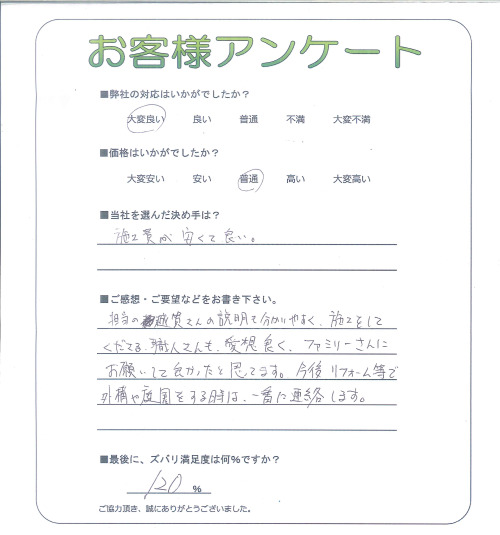 お客様アンケート
■弊社の対応はいかがでしたか？
大変良い 良い 普通 不満 大変不満
■価格はいかがでしたか？
大変安い 安い 普通 高い 大変高い
■当社を選んだ決め手は？
施工費が安くて良い。
■ご感想・ご要望などをお書き下さい。
担当の さんの説明も分かりやすく、施工をして
くださる職人さんも、愛想良く、ファミリーさんに
お願いして良かったと思ってます。今後リフォーム等で
外構や庭園をする時は、一番に連絡します。
■最後に、ズバリ満足度は何%ですか？
120 %
ご協力頂き、誠にありがとうございました。